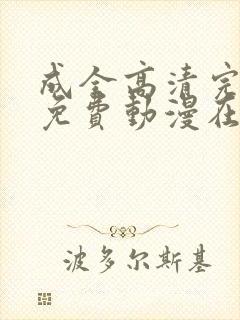 成全高清完
免費動漫在
波多尔斯基